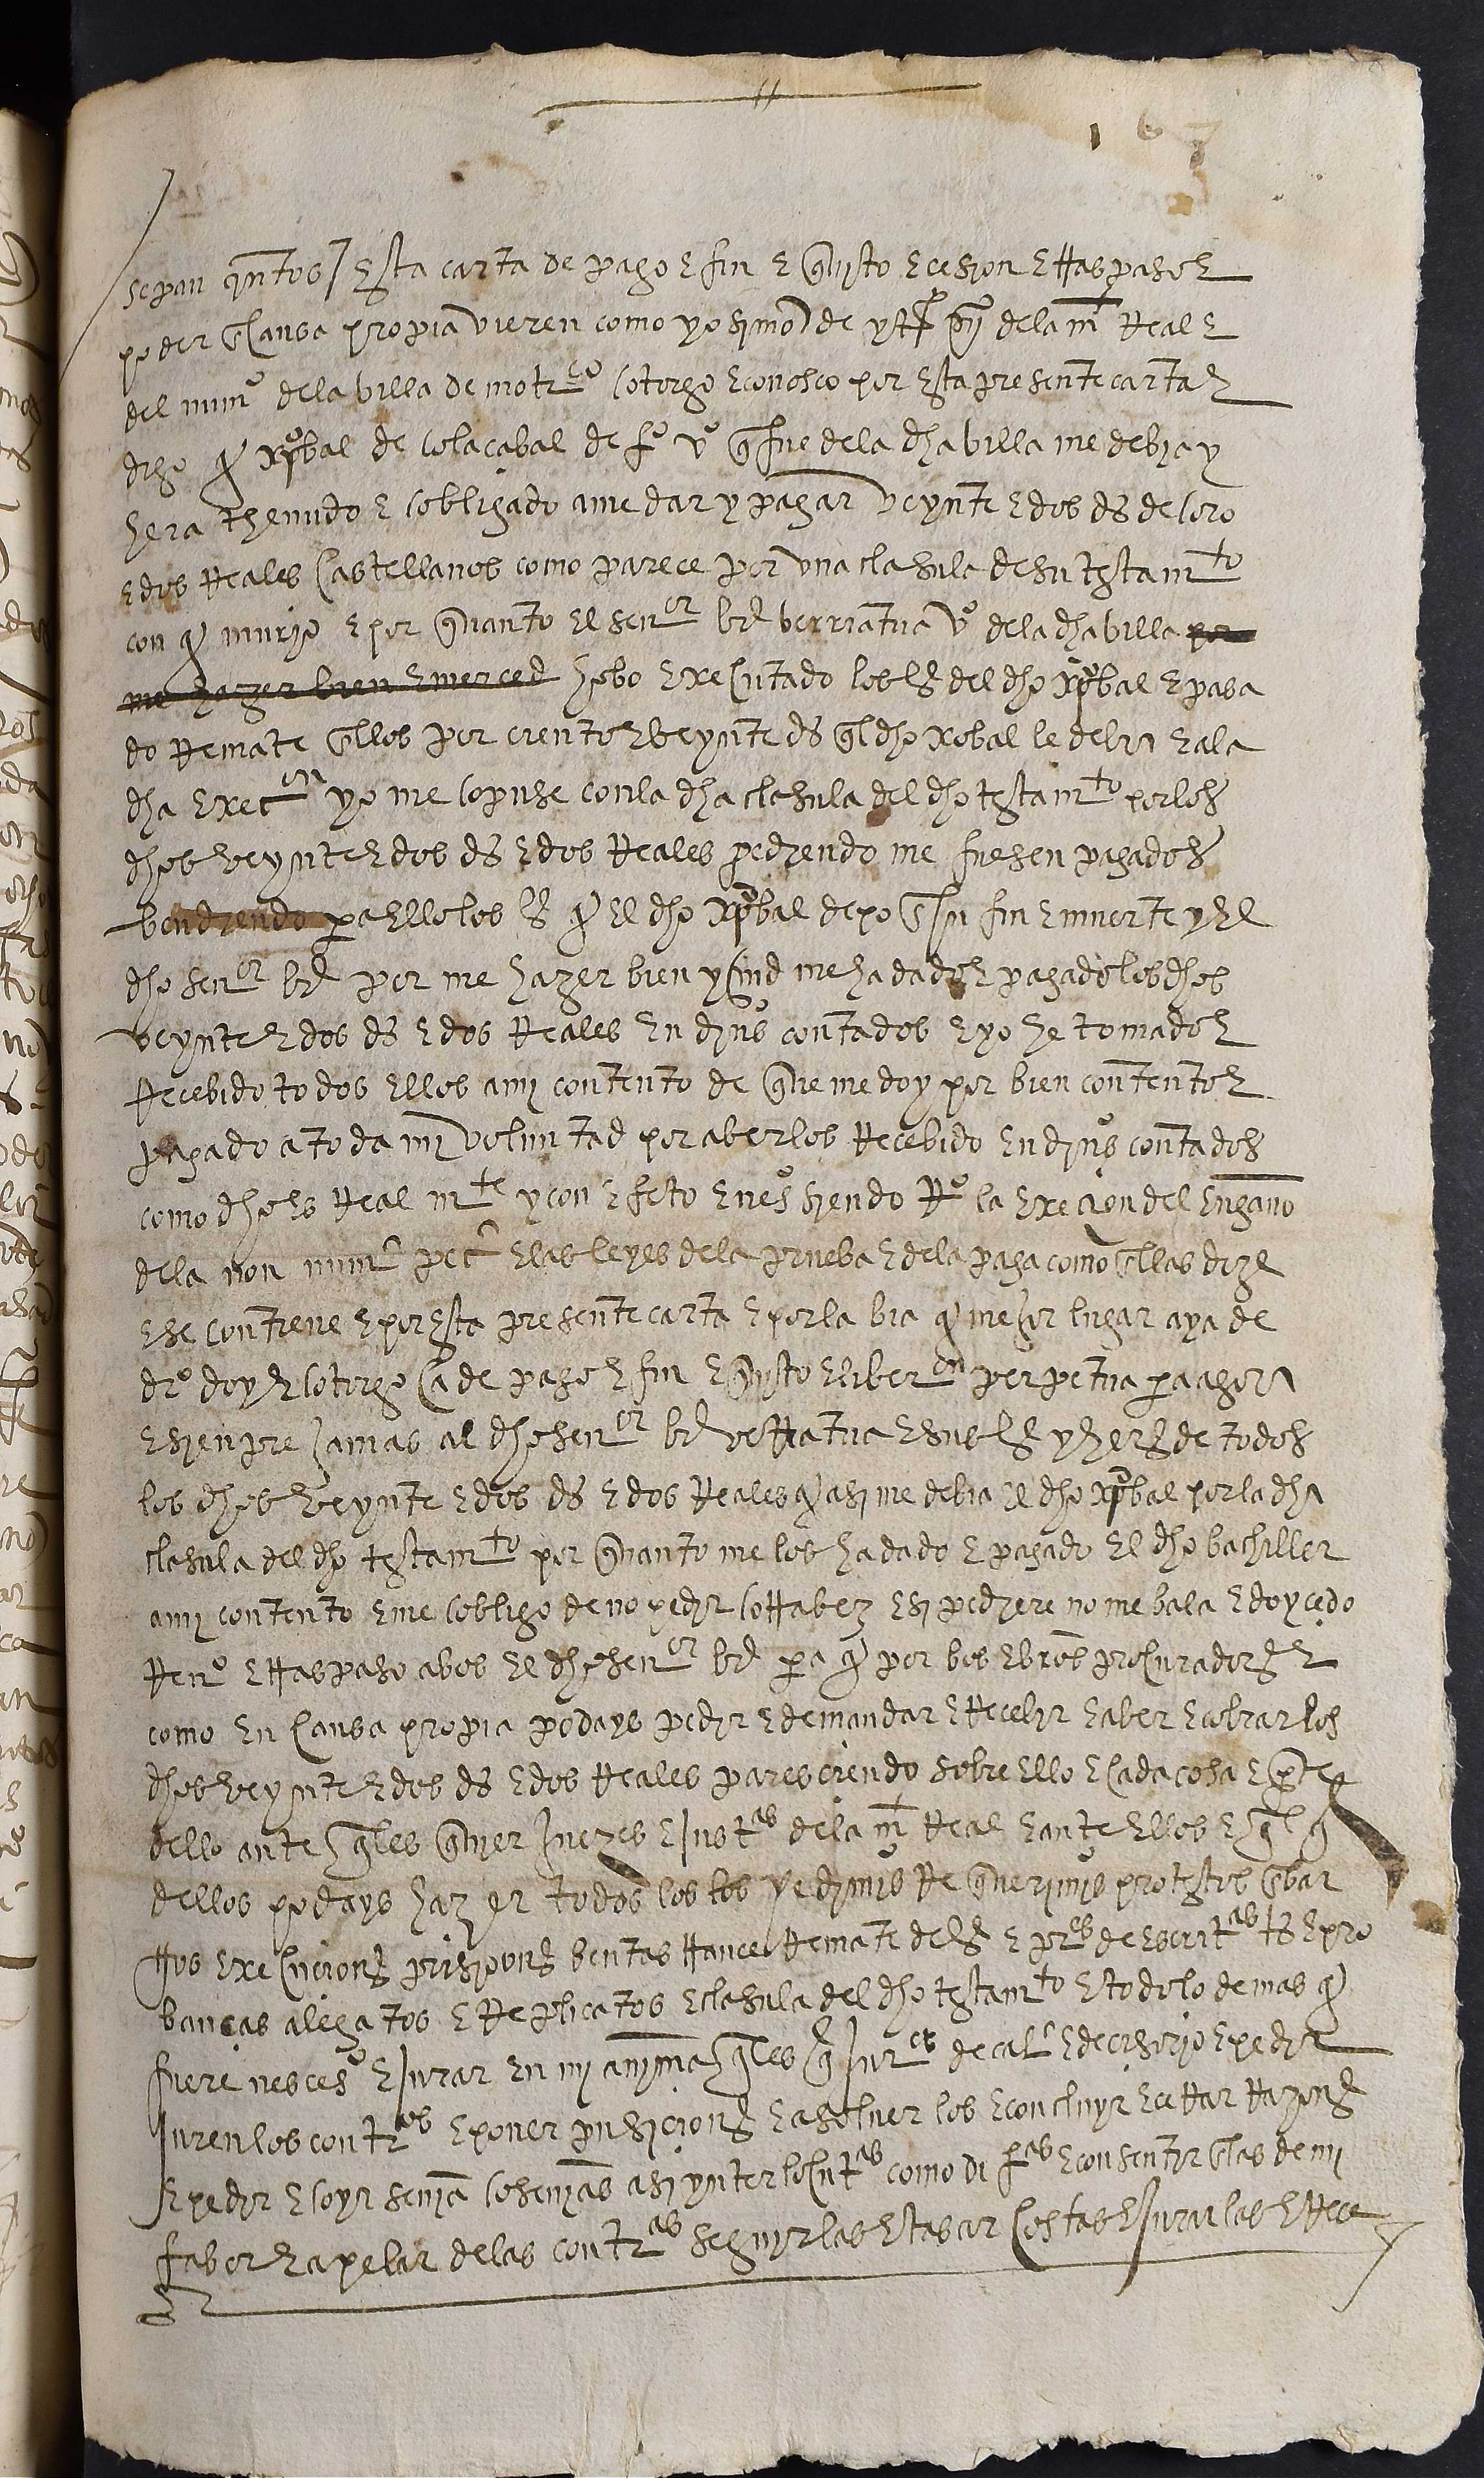 167
sepan qntos esta carta de pago e fin e quito e cesion e traspaso e
poder en cabsa propia vieren como yo simon de yt~ ~ de la mt real e
del num° de la villa de motrco otorgo e conosco por esta presente carta e
digo q xpobal de olacabal de f° v° q fue de la dha villa me debia y
hera thenudo e obligado a me dar y pagar veynte e dos ds de oro
e dos reales castellanos como parece por vna clasula de su testamto
con q murio e por quanto el senor br berriatua v° de la dha villa por
me hazer bien e merced hobo executado los bs del dho xpobal e pasa
do remate en ellos por ciento e veynte ds ql dho xobal le debia e a la
dha execon yo me opuse con la dha clasula del dho testamto por los
dhos veynte e dos ds e dos reales pediendo me fuesen pagados
vendiendo pa ello los bs q el dho xpobal dexo en su fin e muerte y el
dho senor br por me hazer bien y md me ha dado e pagado los dhos
veynte e dos ds e dos reales en dinos contados e yo he tomado e
recebido todos ellos a mi contento de que me doy por bien contento e
pagado a toda mi voluntad por aberlos recebido en dinos contados
como dho es real mte y con efeto e nes° siendo r° la execion del engano
de la non num pec e las leyes de la prueba e de la paga como en ellas dize
e se contiene e por esta presente carta e por la bia q mejor lugar aya de
dr° doy e otorgo ca de pago e fin e quito e liberon perpetua pa agora
e sienpre jamas al dho senor br verriatua e sus bs y hers de todos
los dhos veynte e dos ds e dos reales q asi me debia el dho xpobal por la dha
clasula del dho testamto por quanto me los ha dado e pagado el dho bachiller
a mi contento e me obligo de no pedir otra bez e si pediere no me bala e doy cedo
ren° e traspaso a bos el dho senor br pa q por bos e bros procuradores e
como en cabsa propia podays pedir e demandar e recebir e aber e cobrar los
dhos veynte e dos ds e dos reales paresciendo sobre ello e cada cosa e pte
dello ante qles quier juezes e justas de la mt real e ante ellos e ql q
dellos podays hazer todos los pedimis requerimis protestos enbar
gos execuciones prisiones bentas trance remate de bs e pres de escritas ts e pro
bancas alegatos e replicatos e clasula del dho testamto e todo lo demas q
fuere neces° e jurar en mi anima qles q jures de cal e decisorio e pedir
juren los contros e poner pusiciones e asoluer los e concluyr e cerrar razones
e pedir e oyr senia o senias asi ynterlocutas como difas e consentir en las de mi
fabor e apelar de las contras seguyrlas e tasar costas e jurarlas e rece